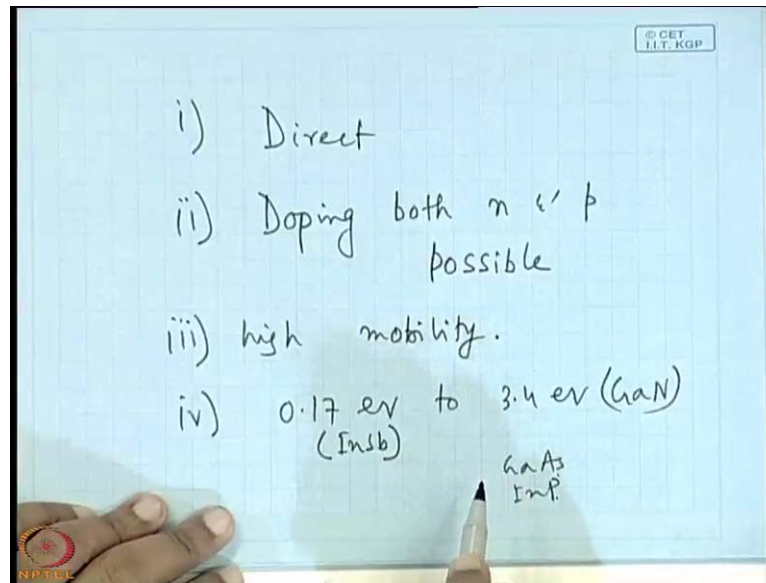 © CET
I.I.T. KGP
i) Direct
ii) Doping both n & p
possible
iii) high mobility.
iv) 0.17 ev to 3.4 ev (GaN)
(InSb)
GaAs
InP.
NPTEL